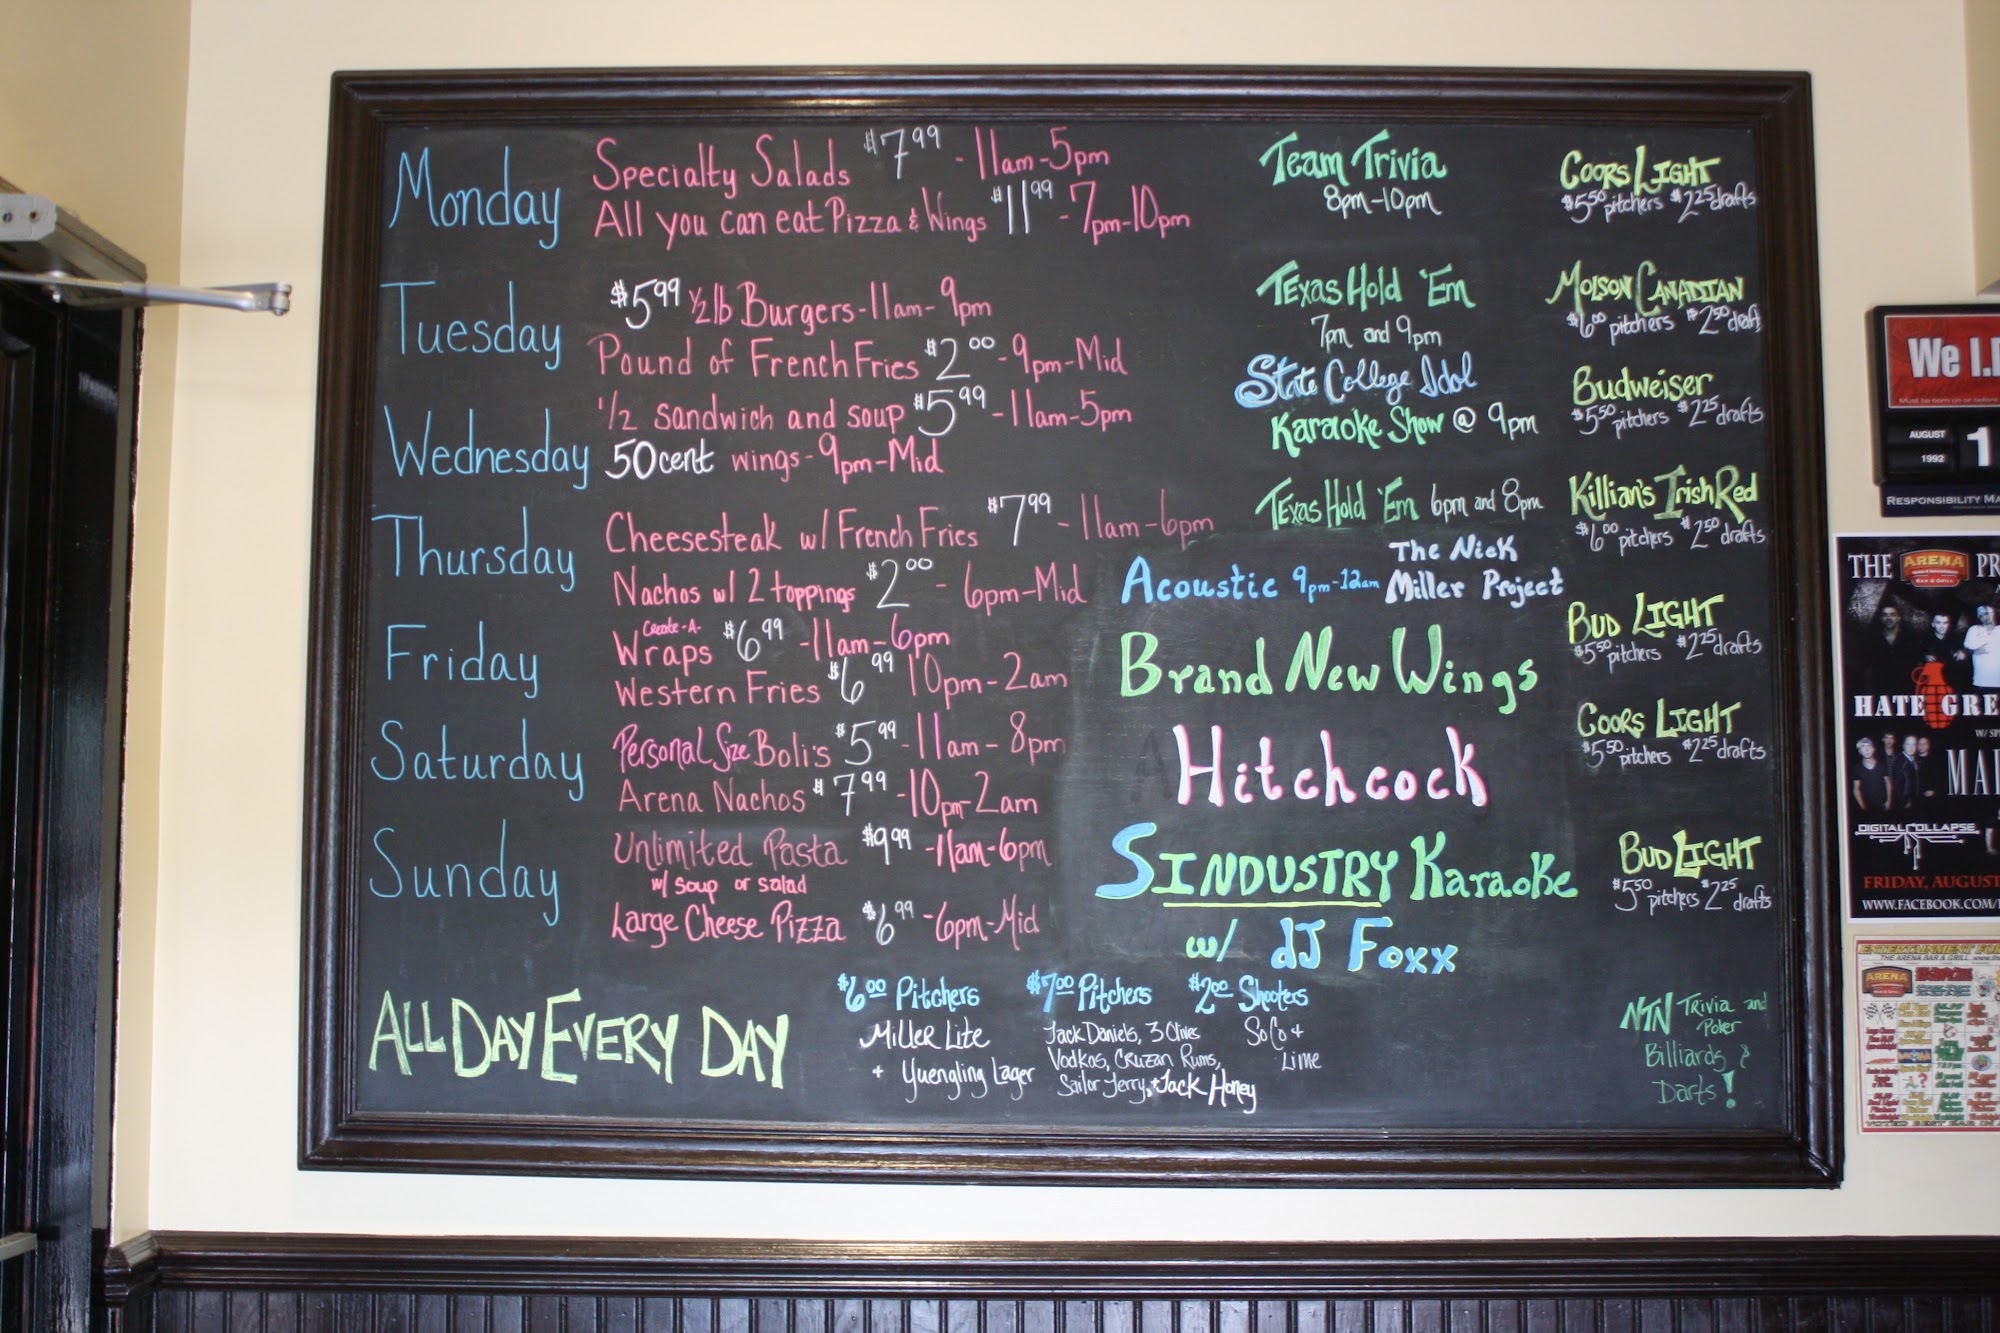 Monday
Specialty Salads $7.99 - 11am-5pm
All you can eat Pizza & Wings $11.99 - 7pm-10pm
Team Trivia
8pm-10pm
Coors Light
$5.50 pitchers $2.25 drafts
Tuesday
$5.99 1/2 lb Burgers - 11am - 9pm
Pound of French Fries $2.00 - 9pm-Mid
Texas Hold 'Em
7pm and 9pm
Molson Canadian
$6.00 pitchers $2.50 draft
Wednesday
1/2 sandwich and soup $5.99 - 11am-5pm
50cent wings - 9pm-Mid
State College Idol
Karaoke Show @ 9pm
Budweiser
$5.50 pitchers $2.25 drafts
Thursday
Cheesesteak w/ French Fries $7.99 - 11am-6pm
Nachos w/ 2 toppings $2.00 - 6pm-Mid
Texas Hold 'Em 6pm and 8pm
Acoustic 9pm-12am The Nick
Miller Project
Killian's Irish Red
$6.00 pitchers $2.50 drafts
Friday
Create-A-
Wraps $6.99 - 11am-6pm
Western Fries $6.99 10pm-2am
Brand New Wings
Bud Light
$5.50 pitchers $2.25 drafts
Saturday
Personal Size Boli's $5.99 - 11am - 8pm
Arena Nachos $7.99 - 10pm-2am
Hitchcock
Coors Light
$5.50 pitchers $2.25 drafts
Sunday
Unlimited Pasta $9.99 - 11am-6pm
w/ soup or salad
Large Cheese Pizza $6.99 - 6pm-Mid
Sindustry Karaoke
w/ dJ Foxx
Bud Light
$5.50 pitchers $2.25 drafts
All Day Every Day
$6.00 Pitchers
Miller Lite
+ Yuengling Lager
$7.00 Pitchers
Jack Daniels, 3 Olives
Vodkas, Cruzan Rums,
Sailor Jerry, + Jack Honey
$2.00 Shooters
SoCo +
Lime
NTN Trivia and
Poker
Billiards &
Darts!
We I.D
AUGUST
1992
1
RESPONSIBILITY MA
THE ARENA PR
BAR & GRILL
HATE GRE
W/
MA
DIGITAL COLLAPSE
FRIDAY, AUGUST
WWW.FACEBOOK.COM/
ENTERTAINMENT FO
THE ARENA BAR & GRILL
ARENA
VOTED BEST BAR IN